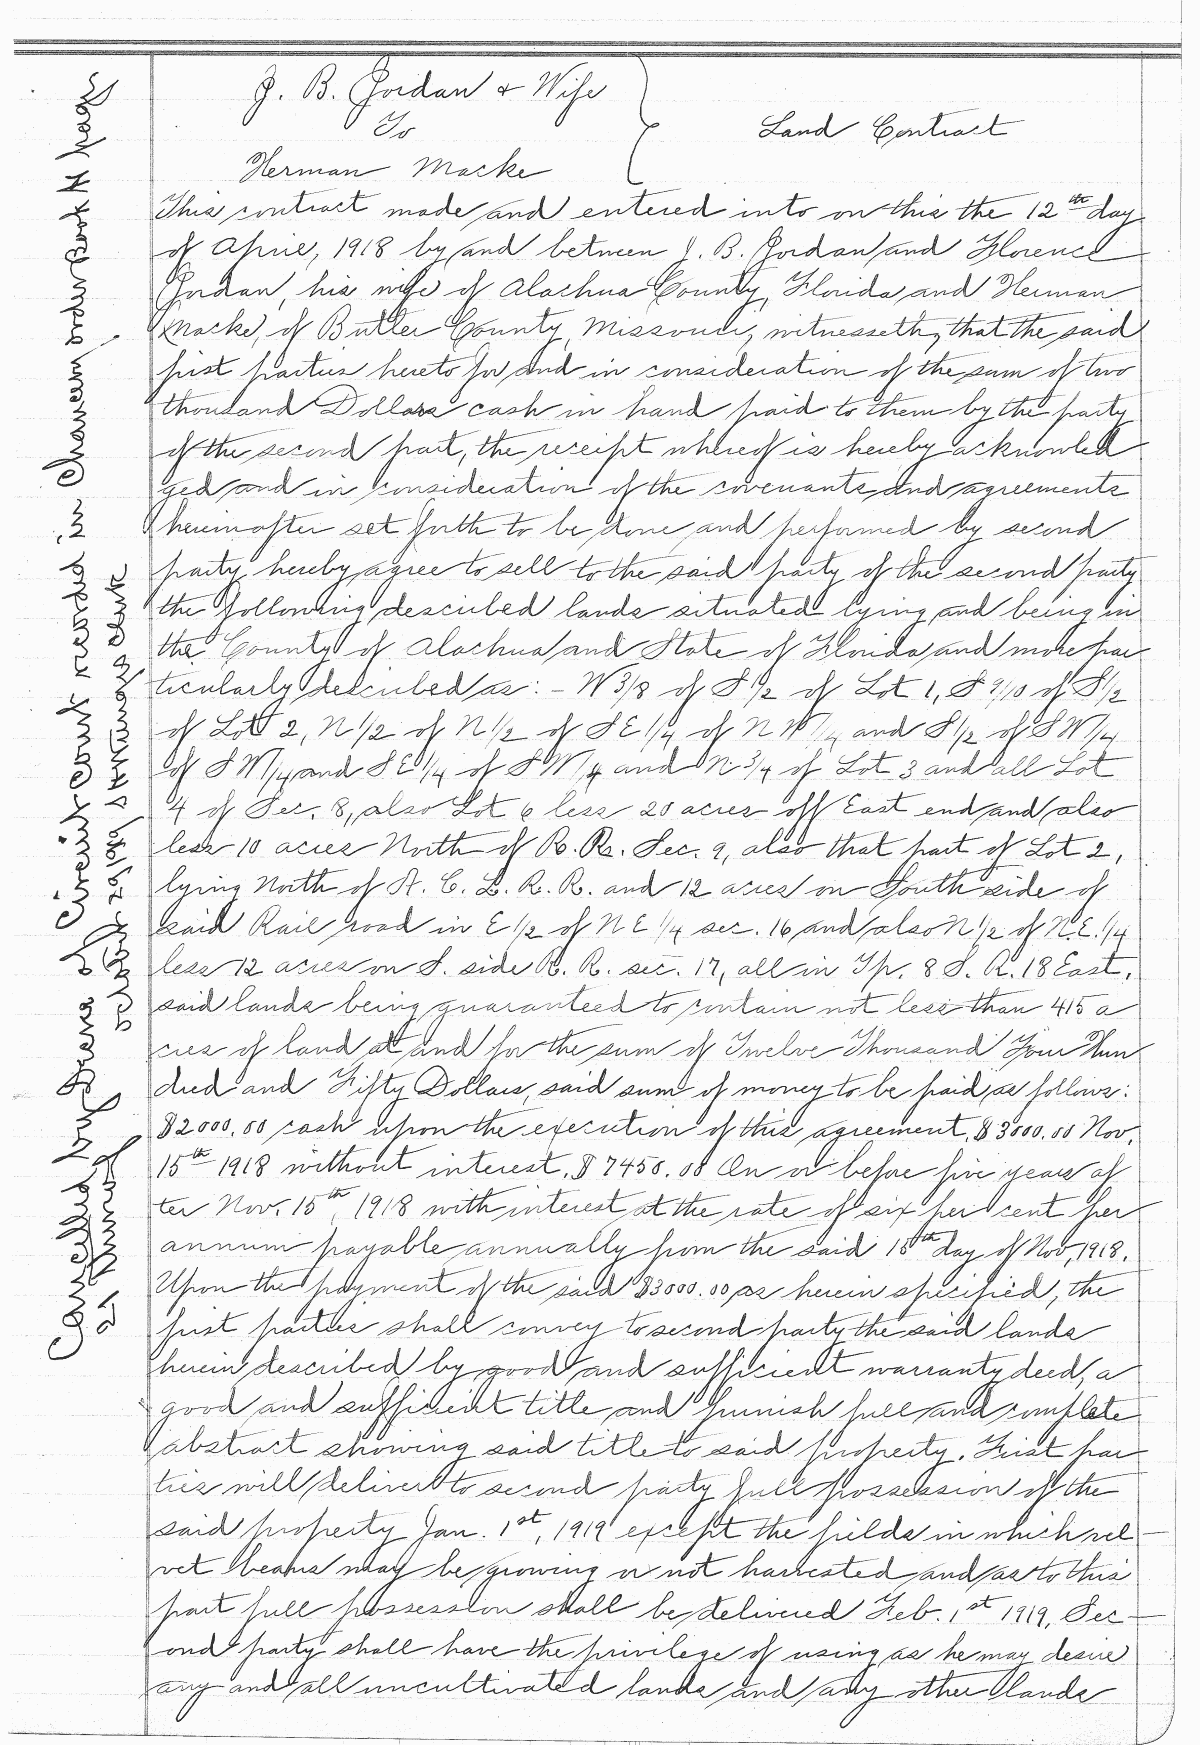 J. B. Jordan & Wife
To
Land Contract
Herman Macke
This contract made and entered into on this the 12th day
of April, 1918 by and between J. B. Jordan and Florence
Jordan, his wife of Alachua County, Florida and Herman
Macke, of Butler County, Missouri, witnesseth, that the said
first parties hereto for and in consideration of the sum of two
thousand Dollars cash in hand paid to them by the party
of the second part, the receipt whereof is hereby acknowled
ged and in consideration of the covenants and agreements
hereinafter set forth to be done and performed by second
party hereby agree to sell to the said party of the second party
the following described lands situated lying and being in
the County of Alachua and State of Florida and more par
ticularly described as: - W 3/8 of S 1/2 of Lot 1, S 9/10 of S 1/2
of Lot 2, N 1/2 of N 1/2 of S E 1/4 of N W 1/4 and S 1/2 of S W 1/4
of S W 1/4 and S E 1/4 of S W 1/4 and N 3/4 of Lot 3 and all Lot
4 of Sec. 8, also Lot 6 less 20 acres off East end and also
less 10 acres North of R. R. Sec. 9, also that part of Lot 2,
lying North of A. C. L. R. R. and 12 acres on South side of
said Rail road in E 1/2 of N E 1/4 sec. 16 and also N 1/2 of N.E. 1/4
less 12 acres on S. side R. R. sec. 17, all in Tp. 8 S. R. 18 East,
said lands being guaranteed to contain not less than 415 a
cres of land at and for the sum of Twelve Thousand Four Hun
dred and Fifty Dollars, said sum of money to be paid as follows:
$2000.00 cash upon the execution of this agreement, $3000.00 Nov.
15th 1918 without interest, $7450.00 On or before five years af
ter Nov. 15th, 1918 with interest at the rate of six per cent per
annum payable annually from the said 15th day of Nov, 1918.
Upon the payment of the said $3000.00 as herein specified, the
first parties shall convey to second party the said lands
herein described by good and sufficient warranty deed, a
good and sufficient title and furnish full and complete
abstract showing said title to said property. First par
ties will deliver to second party full possession of the
said property Jan. 1st, 1919 except the fields in which vel
vet beans may be growing or not harvested and as to this
part full possession shall be delivered Feb. 1st 1919, Sec
ond party shall have the privilege of using as he may desire
any and all uncultivated lands and any other lands
Cancelled by Circuit Court recorded in Chancery order Book H page